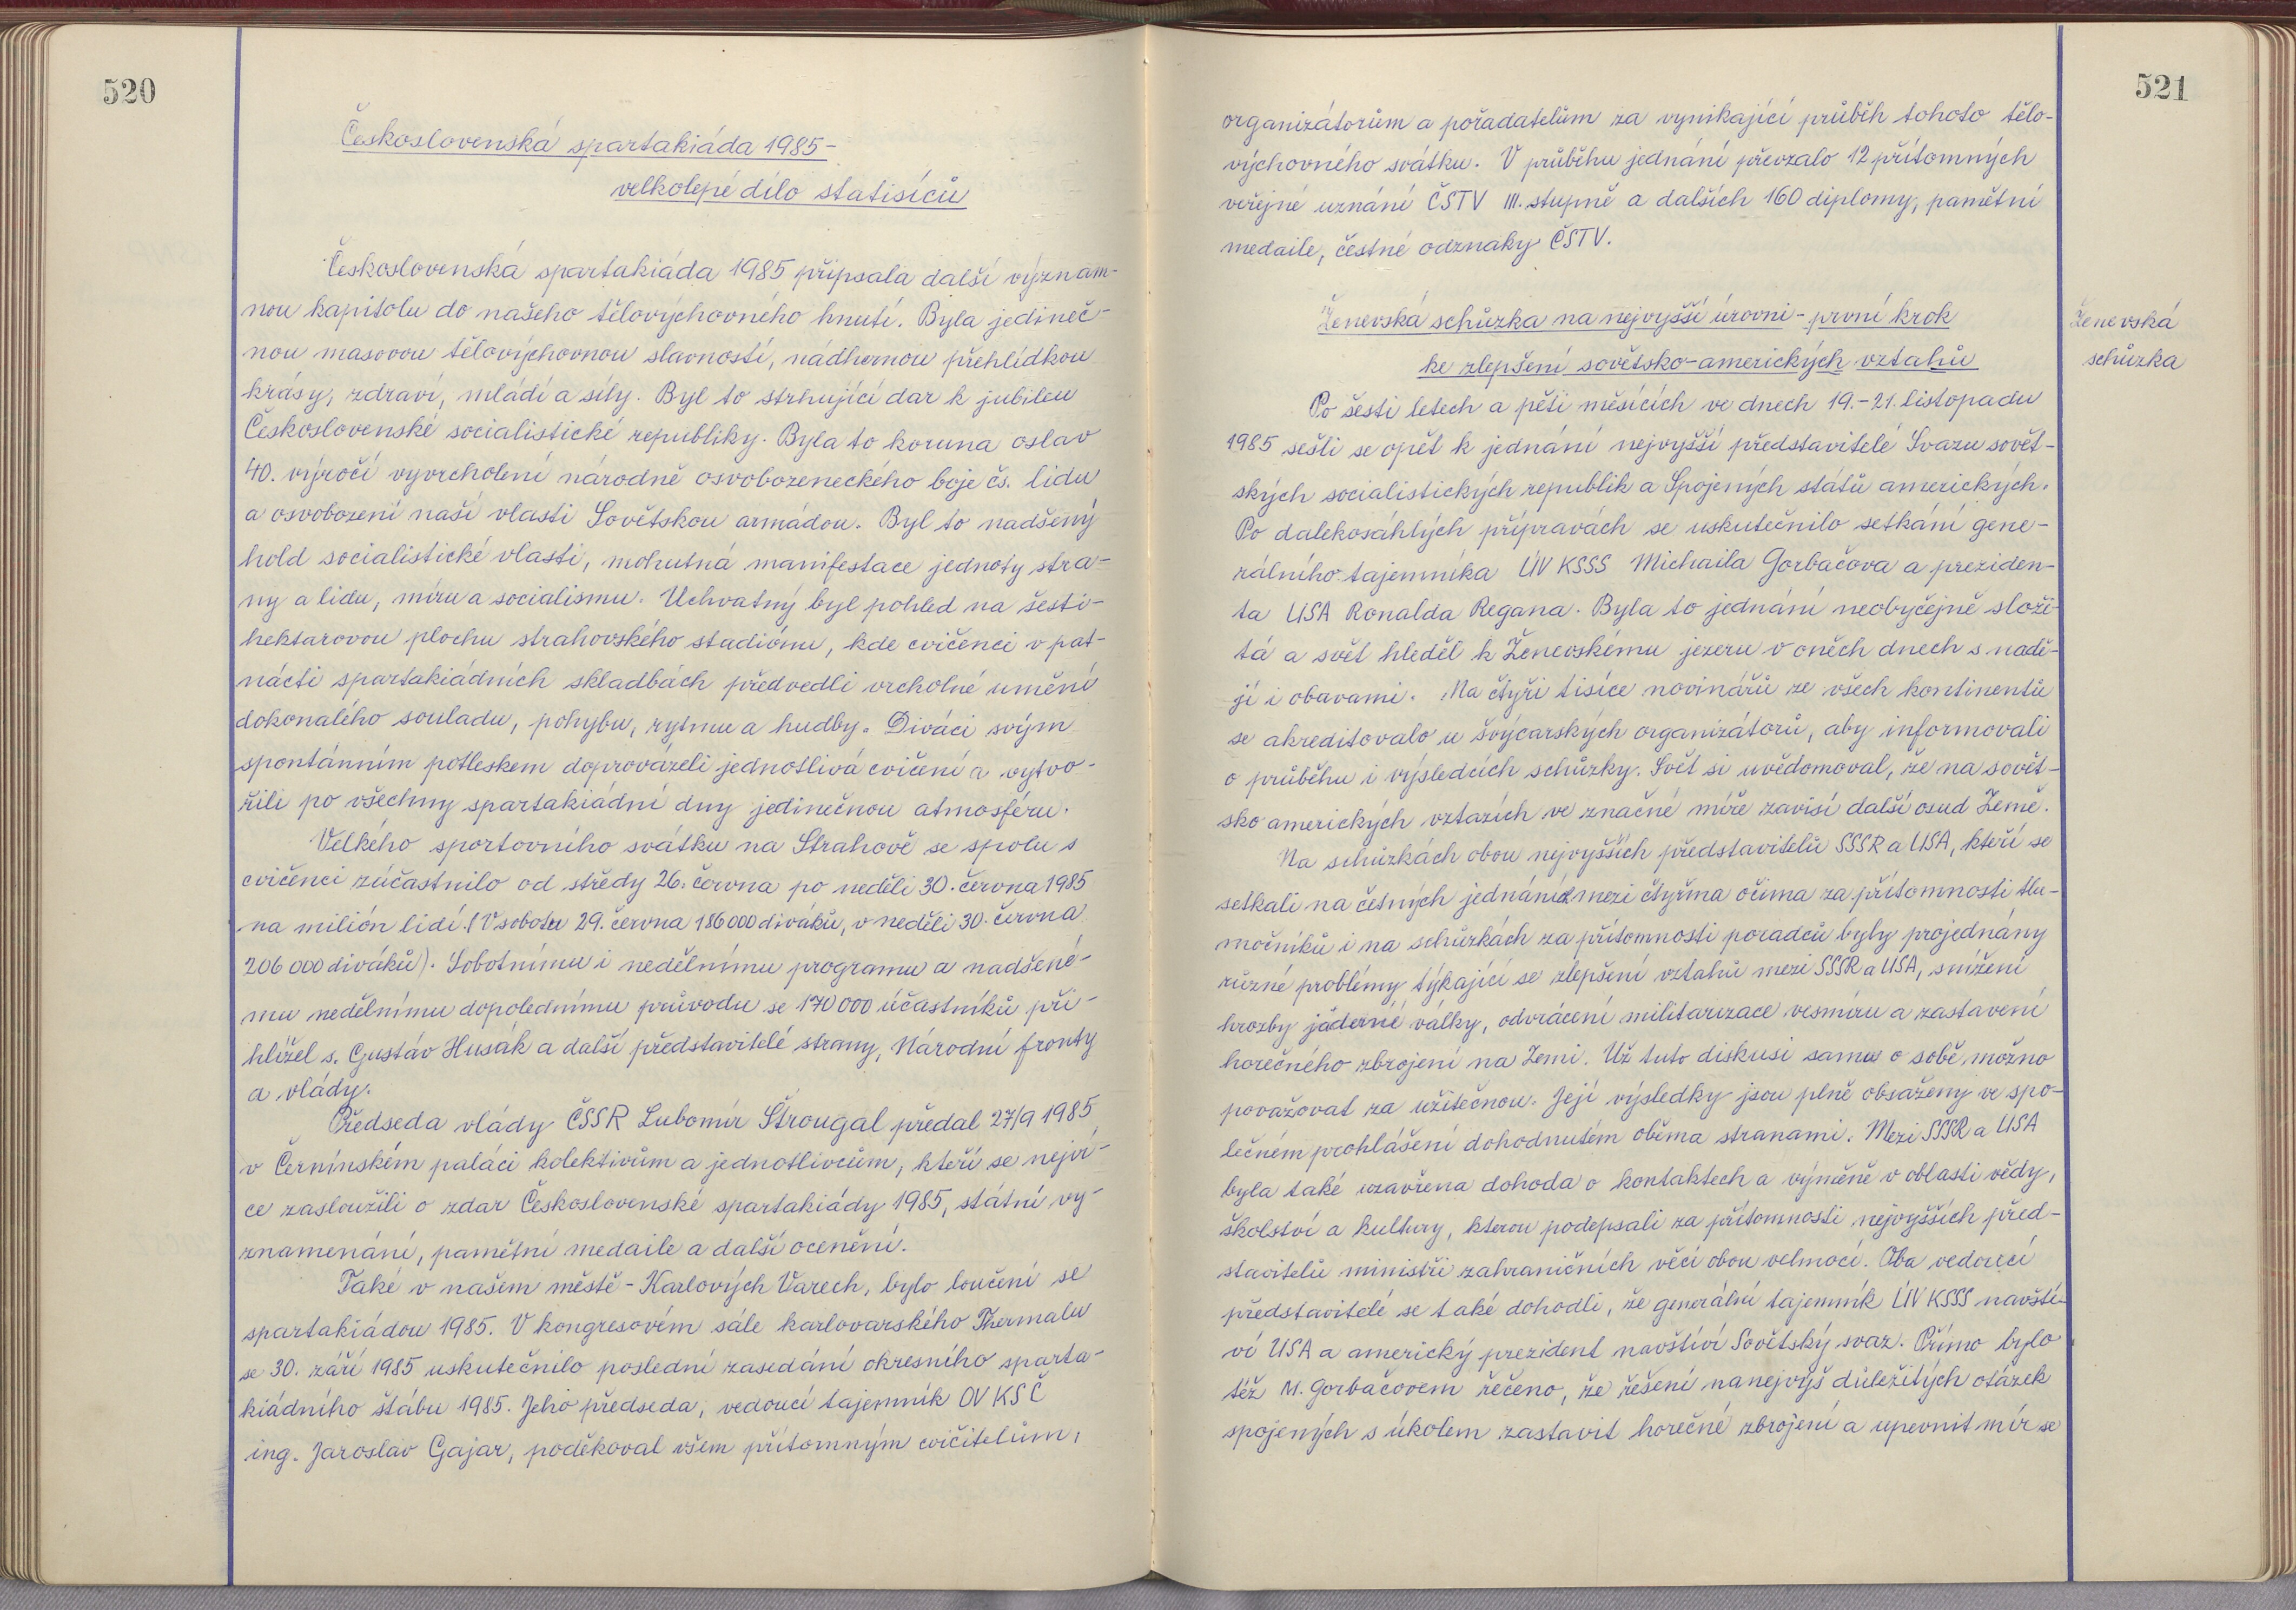 520
Československá spartakiáda 1985-
velkolepé dílo statisíců
Československá spartakiáda 1985 připsala další význam-
nou kapitolu do našeho tělovýchovného hnutí. Byla jedineč-
nou masovou tělovýchovnou slavností, nádhernou přehlídkou
krásy, zdraví, mládí a síly. Byl to strhující dar k jubileu
Československé socialistické republiky. Byla to koruna oslav
40. výročí vyvrcholení národně osvobozeneckého boje čs. lidu
a osvobození naší vlasti Sovětskou armádou. Byl to nadšený
hold socialistické vlasti, mohutná manifestace jednoty stra-
ny a lidu, míru a socialismu. Uchvatný byl pohled na šesti-
hektarovou plochu strahovského stadiónu, kde cvičenci v pat-
nácti spartakiádních skladbách předvedli vrcholné umění
dokonalého souladu, pohybu, rytmu a hudby. Diváci svým
spontánním potleskem doprovázeli jednotlivá cvičení a vytvo-
řili po všechny spartakiádní dny jedinečnou atmosféru.
Velkého sportovního svátku na Strahově se spolu s
cvičenci zúčastnilo od středy 26. června po neděli 30. června 1985
na milión lidí. (V sobotu 29. června 186000 diváků, v neděli 30. června
206 000 diváků). Sobotnímu i nedělnímu programu a nadšené-
mu nedělnímu dopolednímu průvodu se 170 000 účastníků při-
hlížel s. Gustáv Husák a další představitelé strany, Národní fronty
a vlády.
Předseda vlády ČSSR Lubomír Štrougal předal 27/9 1985
v Černínském paláci kolektivům a jednotlivcům, kteří se nejví-
ce zasloužili o zdar Československé spartakiády 1985, státní vy-
znamenání, pamětní medaile a další ocenění.
Také v našem městě - Karlových Varech, bylo loučení se
spartakiádou 1985. V kongresovém sále karlovarského Thermalu
se 30. září 1985 uskutečnilo poslední zasedání okresního sparta-
kiádního štábu 1985. Jeho předseda, vedoucí tajemník OV KSČ
ing. Jaroslav Gajar, poděkoval všem přítomným cvičitelům,
521
organizátorům a pořadatelům za vynikající průběh tohoto tělo-
výchovného svátku. V průběhu jednání převzalo 12 přítomných
veřejné uznání ČSTV III. stupně a dalších 160 diplomy, pamětní
medaile, čestné odznaky ČSTV.
Ženevská schůzka na nejvyšší úrovni - první krok
ke zlepšení sovětsko-amerických vztahů
Ženevská
schůzka
Po šesti letech a pěti měsících ve dnech 19.-21. listopadu
1985 sešli se opět k jednání nejvyšší představitelé Svazu sovět-
ských socialistických republik a Spojených států amerických.
Po dalekosáhlých přípravách se uskutečnilo setkání gene-
rálního tajemníka ÚV KSSS Michaila Gorbačova a preziden-
ta USA Ronalda Regana. Byla to jednání neobyčejně složi-
tá a svět hleděl k Ženevskému jezeru v oněch dnech s nadě-
jí i obavami. Na čtyři tisíce novinářů ze všech kontinentů
se akreditovalo u švýcarských organizátorů, aby informovali
o průběhu i výsledcích schůzky. Svět si uvědomoval, že na sovět-
sko amerických vztazích ve značné míře zavisí další osud Země.
Na schůzkách obou nejvyšších představitelů SSSR a USA, kteří se
setkali na četných jednáních mezi čtyřma očima za přítomnosti tlu-
močníků i na schůzkách za přítomnosti poradců byly projednány
různé problémy týkající se zlepšení vztahů mezi SSSR a USA, snížení
hrozby jáderné války, odvrácení militarizace vesmíru a zastavení
horečného zbrojení na Zemi. Už tuto diskusi samu o sobě možno
považovat za užitečnou. Její výsledky jsou plně obsaženy ve spo-
lečném prohlášení dohodnutém oběma stranami. Mezi SSSR a USA
byla také uzavřena dohoda o kontaktech a výměně v oblasti vědy,
školství a kultury, kterou podepsali za přítomnosti nejvyšších před-
stavitelů ministři zahraničních věcí obou velmocí. Oba vedoucí
představitelé se také dohodli, že generální tajemník ÚV KSSS navští-
ví USA a americký prezident navštíví Sovětský svaz. Přímo bylo
též M. Gorbačovem řečeno, že řešení nanejvýš důležitých otázek
spojených s úkolem zastavit horečné zbrojení a upevnit mír se